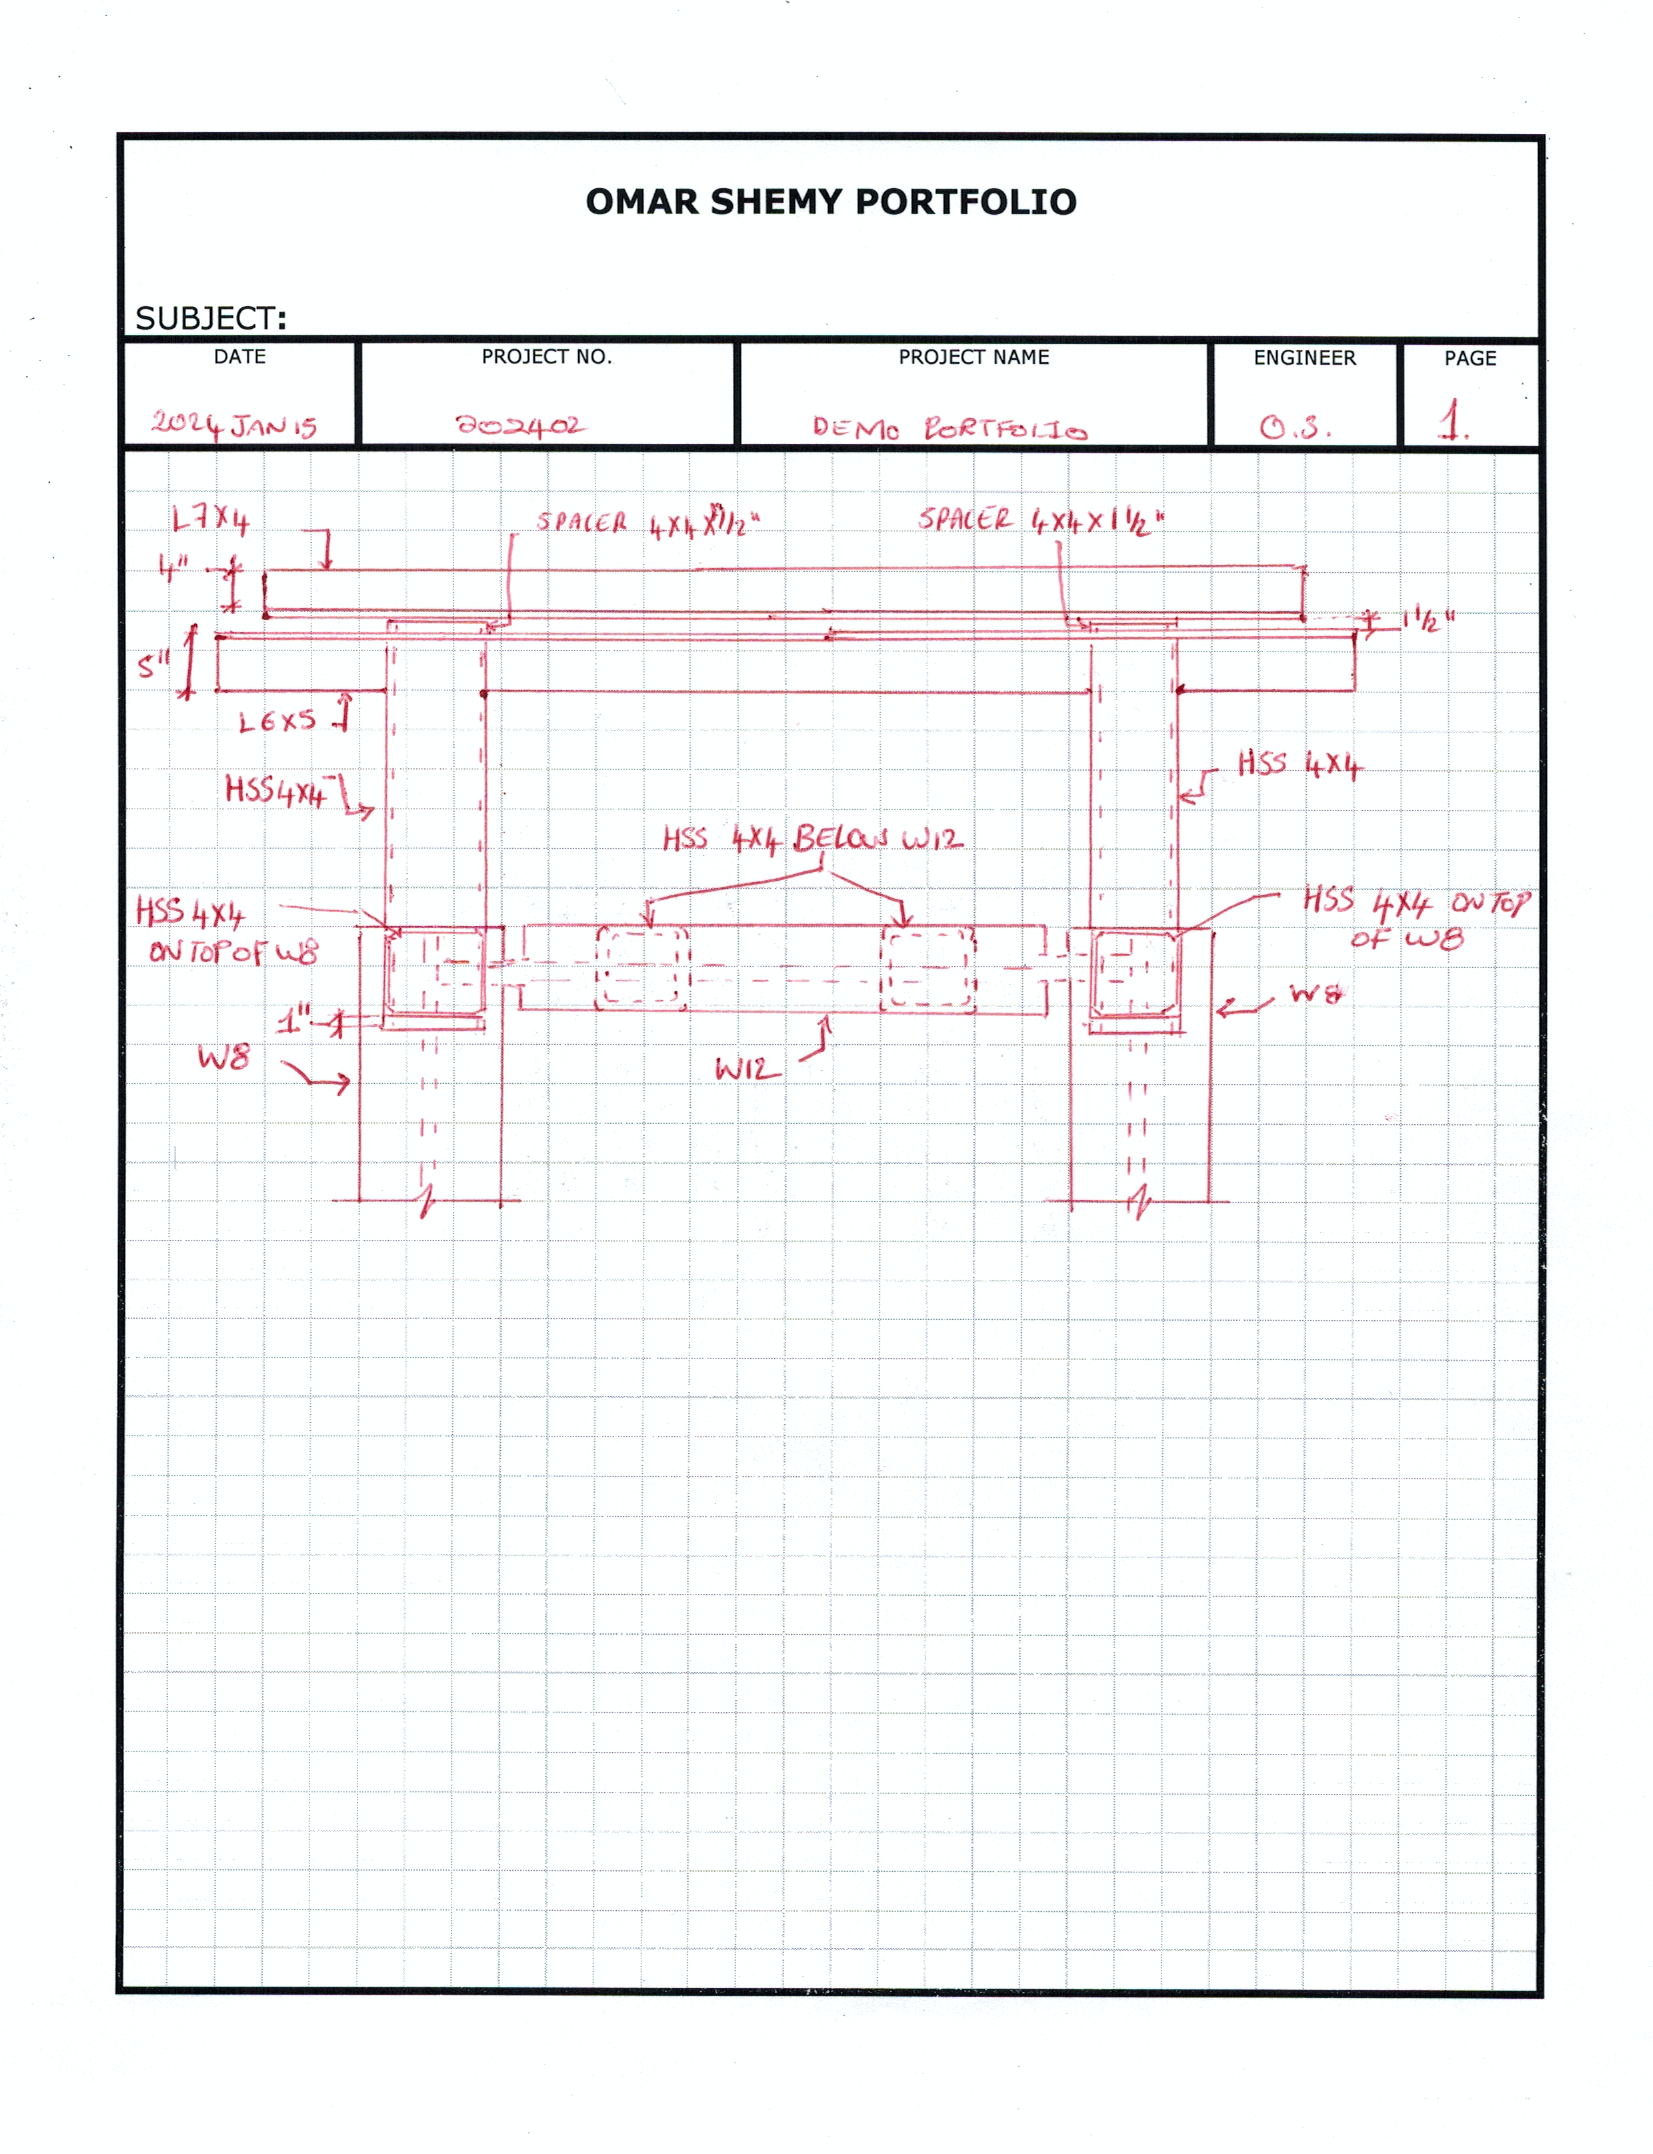 OMAR SHEMY PORTFOLIO
SUBJECT:
DATE
PROJECT NO.
PROJECT NAME
ENGINEER
PAGE
2024 JAN 15
202402
DEMO PORTFOLIO
O.S.
1.
L7X4
SPACER 4X4X1 1/2"
SPACER 4X4X1 1/2"
4"
1 1/2"
5"
L6X5
HSS 4X4
HSS4X4
HSS 4X4 BELOW W12
HSS 4X4
ON TOP OF W8
HSS 4X4 ON TOP
OF W8
W8
1"
W8
W12